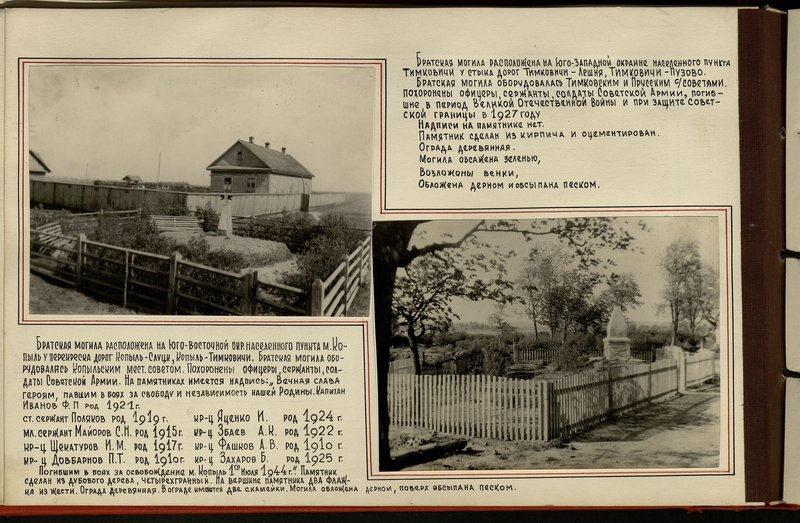 Братская могила расположена на юго-западной окраине населенного пункта
Тимковичи у стыка дорог Тимковичи – Лешня, Тимковичи – Пузово.
Братская могила оборудовалась Тимковским и Прусским с/советами.
Похоронены офицеры, сержанты, солдаты Советской Армии, погиб-
шие в период Великой Отечественной Войны и при защите Совет-
ской границы в 1927 году
Надписи на памятнике нет.
Памятник сделан из кирпича и оцементирован.
Ограда деревянная.
Могила обсажена зеленью,
Возложены венки,
Обложена дерном и обсыпана песком.
Братская могила расположена на юго-восточной окр. населенного пункта м. Ко-
пыль у перекрестка дорог Копыль-Слуцк, Копыль-Тимковичи. Братская могила обо-
рудовалась Копыльским мест. советом. Похоронены офицеры, сержанты, сол-
даты Советской Армии. На памятниках имеется надпись: „Вечная слава
героям, павшим в боях за свободу и независимость нашей Родины. Капитан
Иванов Ф.П род 1921 г.
ст. сержант Поляков род 1919 г. кр-ц Яценко И. род 1924 г.
мл. сержант Майоров С.Н. род 1915 г. кр-ц Збаев А.К. род 1922 г.
кр-ц Щекатуров И.М. род 1917 г. кр-ц Фашков А.В. род 1910 г.
кр-ц Довбарнов П.Т. род 1910 г. кр-ц Захаров Б. род 1925 г.
Погибшим в боях за освобождение м. Копыль 1го июля 1944 г." Памятник
сделан из дубового дерева, четырехгранный. На вершине памятника два флаж-
ка из жести. Ограда деревянная. В ограде имеются две скамейки. Могила обложена дерном, поверх обсыпана песком.